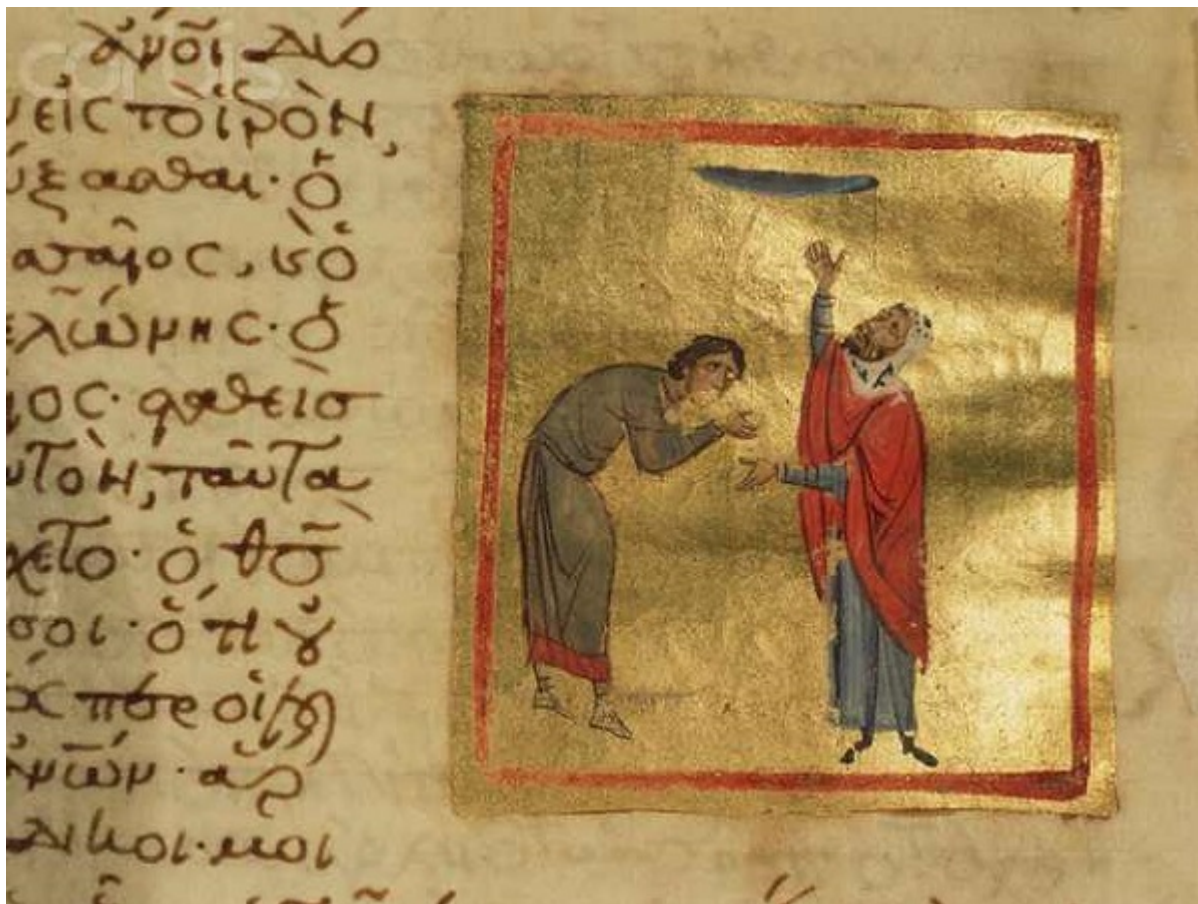 ἄνοι δύο
εἰς τὸ ἱερὸν,
ύξασθαι· ὁ
σαῖος, κ ὁ
ελώνης· ὁ
ῖος· σταθεὶς
υτὸν, ταῦτα
χετο· ὁ θς
σοι· ὅτι οὐ
ὥσπερ οἱ
ἀνῶν· ἅρ
ἄδικοι· μοι